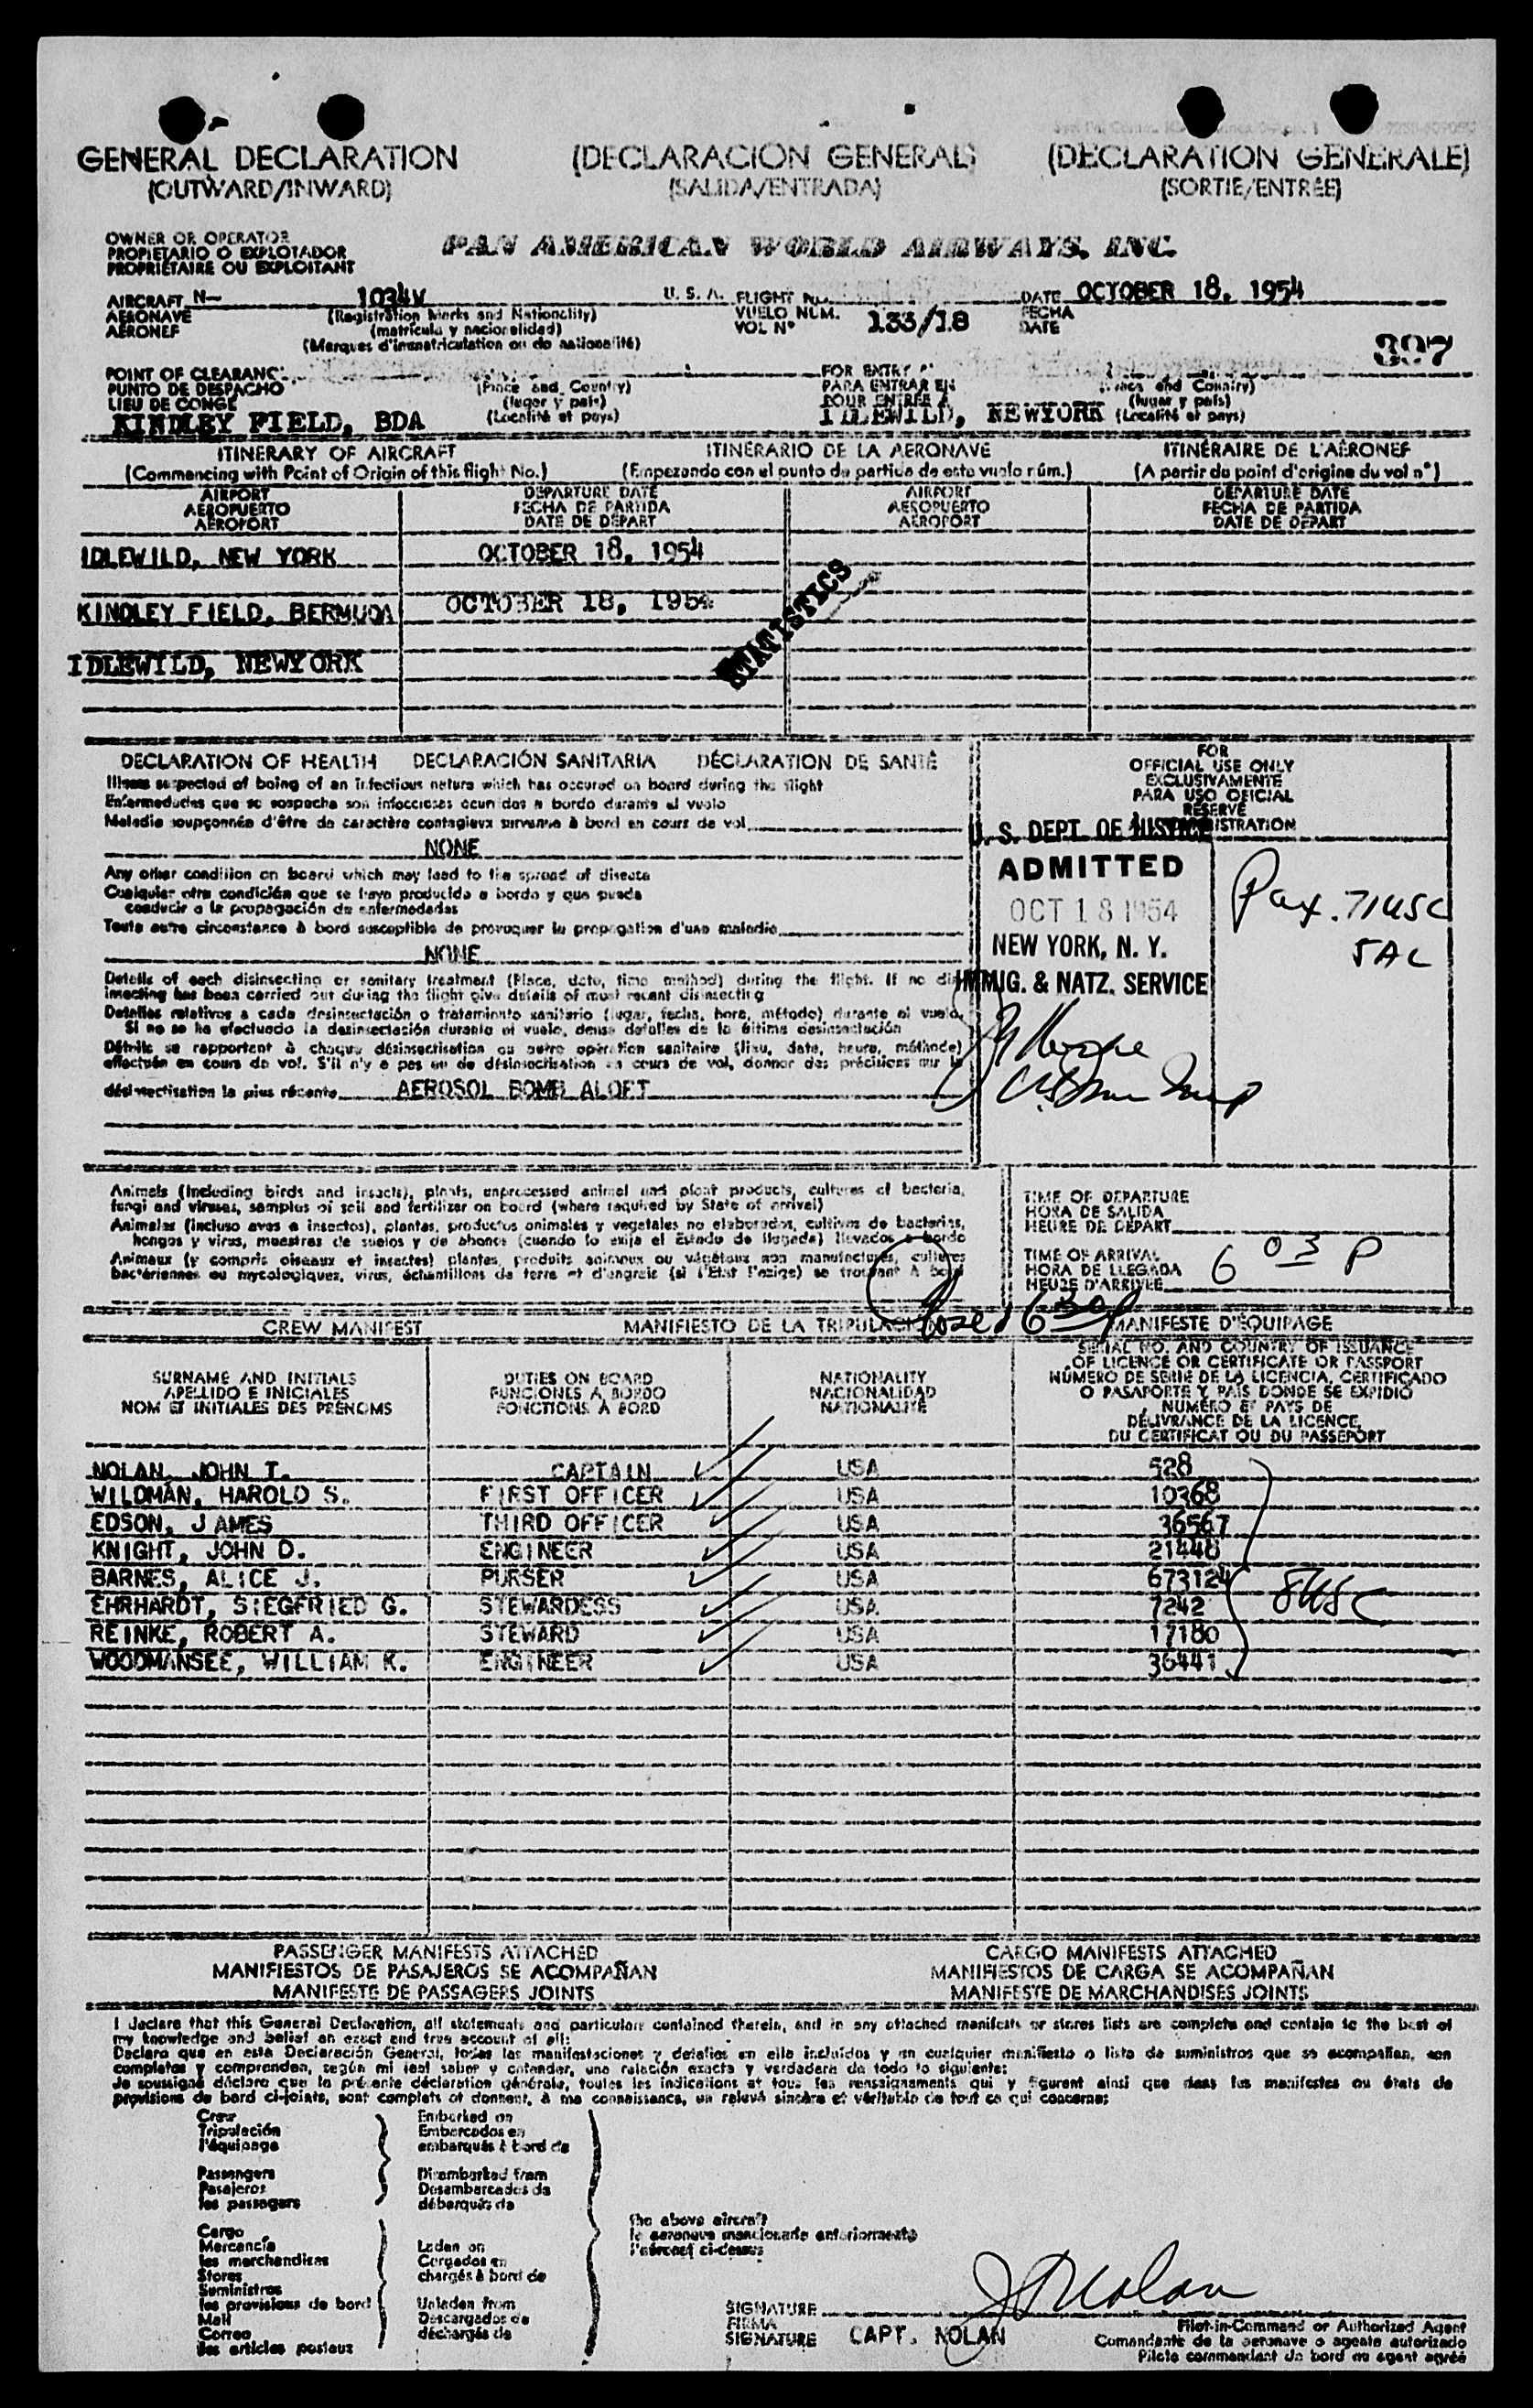 GENERAL DECLARATION (DECLARACION GENERAL) (DÉCLARATION GÉNÉRALE)
(OUTWARD/INWARD) (SALIDA/ENTRADA) (SORTIE/ENTRÉE)
OWNER OR OPERATOR
PROPIETARIO O EXPLOTADOR
PROPRIÉTAIRE OU EXPLOITANT
PAN AMERICAN WORLD AIRWAYS, INC.
AIRCRAFT N- 1034V U. S. A. FLIGHT NO. DATE OCTOBER 18, 1954
AERONAVE (Registration Marks and Nationality) VUELO NUM. 133/18 FECHA
AÉRONEF (matrícula y nacionalidad) VOL N° DATE
(Marques d'immatriculation ou de nationalité)
397
POINT OF CLEARANCE FOR ENTRY
PUNTO DE DESPACHO (Place and Country) PARA ENTRAR EN (Place and Country)
LIEU DE CONGÉ (lugar y país) POUR ENTRÉE À (lugar y país)
KINDLEY FIELD, BDA (Localité et pays) IDLEWILD, NEWYORK (Localité et pays)
ITINERARY OF AIRCRAFT ITINERARIO DE LA AERONAVE ITINÉRAIRE DE L'AÉRONEF
(Commencing with Point of Origin of this flight No.) (Empezando con el punto de partida de este vuelo núm.) (A partir du point d'origine du vol n°)
AIRPORT DEPARTURE DATE AIRPORT DEPARTURE DATE
AEROPUERTO FECHA DE PARTIDA AEROPUERTO FECHA DE PARTIDA
AÉROPORT DATE DE DÉPART AÉROPORT DATE DE DÉPART
IDLEWILD, NEW YORK OCTOBER 18, 1954
KINDLEY FIELD, BERMUDA OCTOBER 18, 1954
IDLEWILD, NEWYORK
STATISTICS
DECLARATION OF HEALTH DECLARACIÓN SANITARIA DÉCLARATION DE SANTÉ
Illness suspected of being of an infectious nature which has occured on board during the flight
Enfermedades que se sospecha son infecciosas ocurridas a bordo durante el vuelo
Maladie soupçonnée d'être de caractère contagieux survenue à bord en cours de vol
NONE
Any other condition on board which may lead to the spread of disease
Cualquier otra condición que se haya producido a bordo y que pueda
conducir a la propagación de enfermedades
Toute autre circonstance à bord susceptible de provoquer la propagation d'une maladie
NONE
Details of each disinsecting or sanitary treatment (Place, date, time method) during the flight. If no disinsecting has been carried out during the flight give details of most recent disinsecting
Detalles relativos a cada desinsectación o tratamiento sanitario (lugar, fecha, hora, método) durante el vuelo.
Si no se ha efectuado la desinsectación durante el vuelo, dense detalles de la última desinsectación
Détails se rapportant à chaque désinsectisation ou autre opération sanitaire (lieu, date, heure, méthode)
effectuée en cours de vol. S'il n'y a pas eu de désinsectisation en cours de vol, donner des précisions sur la
désinsectisation la plus récente AEROSOL BOMB ALOFT
FOR
OFFICIAL USE ONLY
EXCLUSIVAMENTE
PARA USO OFICIAL
RÉSERVÉ
U. S. DEPT. OF JUSTICE
ADMITTED
OCT 18 1954
NEW YORK, N. Y.
IMMIG. & NATZ. SERVICE
Pax. 71 USC
5 AC
Animals (Including birds and insects), plants, unprocessed animal and plant products, cultures of bacteria,
fungi and viruses, samples of soil and fertilizer on board (where required by State of arrival)
Animales (incluso aves e insectos), plantas, productos animales y vegetales no elaborados, cultivos de bacterias,
hongos y virus, muestras de suelos y de abonos (cuando lo exija el Estado de llegada) llevados a bordo
Animaux (y compris oiseaux et insectes) plantes, produits animaux ou végétaux non manufacturés, cultures
bactériennes ou mycologiques, virus, échantillons de terre et d'engrais (si l'État l'exige) se trouvant à bord
TIME OF DEPARTURE
HORA DE SALIDA
HEURE DE DÉPART
TIME OF ARRIVAL
HORA DE LLEGADA
HEURE D'ARRIVÉE
6 03 P
Closed 6 30 P
CREW MANIFEST MANIFIESTO DE LA TRIPULACION MANIFESTE D'ÉQUIPAGE
SURNAME AND INITIALS DUTIES ON BOARD NATIONALITY SERIAL NO. AND COUNTRY OF ISSUANCE
APELLIDO E INICIALES FUNCIONES A BORDO NACIONALIDAD OF LICENCE OR CERTIFICATE OR PASSPORT
NOM ET INITIALES DES PRÉNOMS FONCTIONS À BORD NATIONALITÉ NÚMERO DE SERIE DE LA LICENCIA, CERTIFICADO
O PASAPORTE Y PAÍS DONDE SE EXPIDIÓ
NUMÉRO ET PAYS DE
DÉLIVRANCE DE LA LICENCE,
DU CERTIFICAT OU DU PASSEPORT
NOLAN, JOHN T. CAPTAIN USA 528
WILDMAN, HAROLD S. FIRST OFFICER USA 10368
EDSON, JAMES THIRD OFFICER USA 36567
KNIGHT, JOHN D. ENGINEER USA 21448
BARNES, ALICE J. PURSER USA 673124
EHRHARDT, SIEGFRIED G. STEWARDESS USA 7242
REINKE, ROBERT A. STEWARD USA 17180
WOODMANSEE, WILLIAM K. ENGINEER USA 36441
8 USC
PASSENGER MANIFESTS ATTACHED CARGO MANIFESTS ATTACHED
MANIFIESTOS DE PASAJEROS SE ACOMPAÑAN MANIFIESTOS DE CARGA SE ACOMPAÑAN
MANIFESTE DE PASSAGERS JOINTS MANIFESTE DE MARCHANDISES JOINTS
I declare that this General Declaration, all statements and particulars contained therein, and in any attached manifests or stores lists are complete and contain to the best of
my knowledge and belief an exact and true account of all:
Declaro que en esta Declaración General, todas las manifestaciones y detalles en ella incluidos y en cualquier manifiesto o lista de suministros que se acompañan, son
completos y comprenden, según mi leal saber y entender, una relación exacta y verdadera de todo lo siguiente:
Je soussigné déclare que la présente déclaration générale, toutes les indications et tous les renseignements qui y figurent ainsi que dans les manifestes ou états de
provisions de bord ci-joints, sont complets et donnent, à ma connaissance, un relevé sincère et véritable de tout ce qui concerne:
Crew Embarked on
Tripulación Embarcados en
l'équipage embarqués à bord de
Passengers Disembarked from
Pasajeros Desembarcados de
les passagers débarqués de
the above aircraft
la aeronave mencionada anteriormente
l'aéronef ci-dessus
Cargo
Mercancía Laden on
les marchandises Cargados en
Stores chargés à bord de
Suministros
les provisions de bord Unladen from
Mail Descargados de
Correo déchargés de
les articles postaux
SIGNATURE J T Nolan
FIRMA Pilot-in-Command or Authorized Agent
SIGNATURE CAPT. NOLAN Comandante de la aeronave o agente autorizado
Pilote commandant de bord ou agent agréé